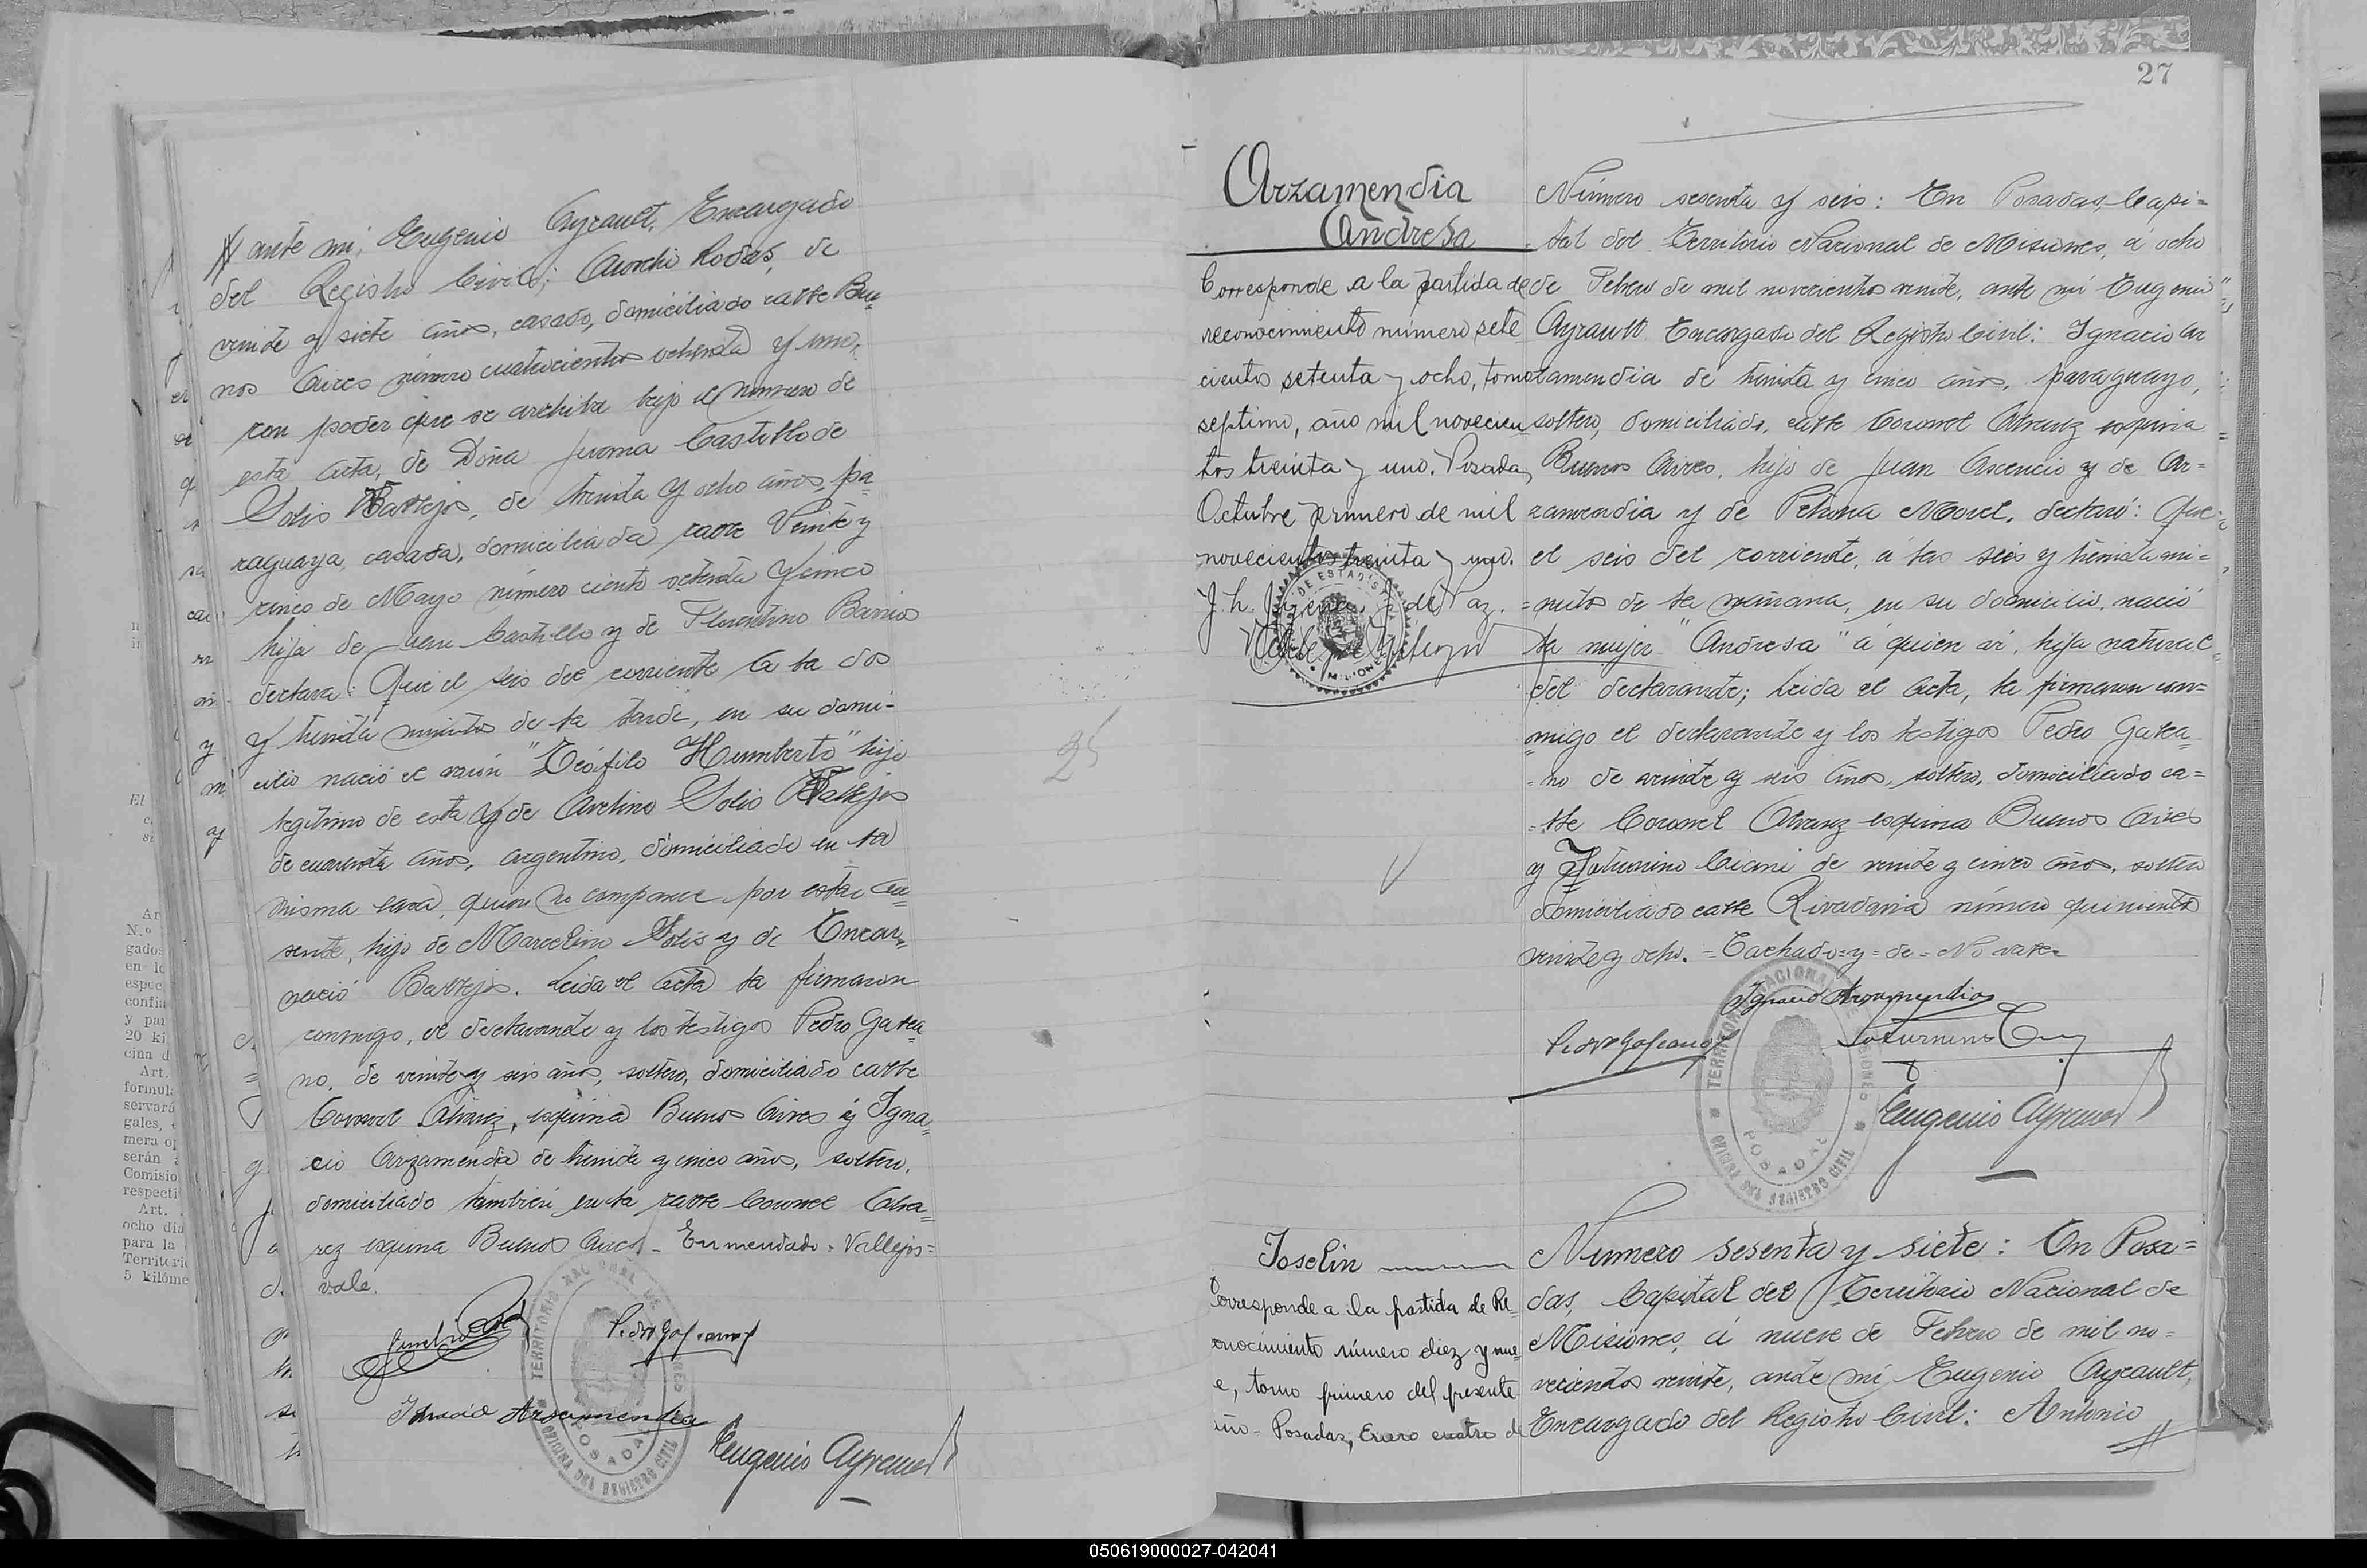 # ante mí, Eugenio Ayrault, Encargado
del Registro Civil; Rodas, de
veinte y siete años, casado, domiciliado calle Bue=
nos Aires número cuatrocientos ochenta y uno,
con poder que se archiba bajo el número de
esta acta, de Doña Juana Castillo de
Solis Vallejos, de treinta y ocho años, pa=
raguaya, casada, domiciliada calle Veinte y
cinco de Mayo número ciento ochenta y cinco
hija de Juan Castillo y de Florentina Barrios
declara: Que el seis del corriente a la dos
y treinta minutos de la tarde, en su domi-
cilio nació el varón "Teófilo Humberto" hijo
legítimo de esta y de Avelino Solis Vallejos
de cuarenta años, argentino, domiciliado en la
misma casa, quien no comparece por estar au=
sente, hijo de Marcelino Solis y de Encar=
nació Vallejos. Leida el acta la firmaron
conmigo, el declarante y los testigos Pedro Galea=
no, de veinte y seis años, soltero, domiciliado calle
Coronel Alvarez, esquina Buenos Aires y Igna=
cio Arzamendia de treinta y cinco años, soltero,
domiciliado también en la calle Coronel Alva=
rez esquina Buenos Aires - Enmendado - Vallejos=
vale.
Pedro Galeano
Ignacio Arzamendia
Eugenio Ayrault
TERRITORIO NACIONAL DE MISIONES
POSADAS
OFICINA DEL REGISTRO CIVIL
25
27
Arzamendia
Andresa
Corresponde a la partida de
reconocimiento número sete
cientos setenta y ocho, tomo
septimo, año mil novecien
tos treinta y uno. Posadas,
Octubre primero de mil
novecientos treinta y uno.
Número sesenta y seis: En Posadas, Capi=
tal del Territorio Nacional de Misiones, á ocho
de Febrero de mil novecientos veinte, ante mí Eugenio
Ayrault Encargado del Registro Civil: Ignacio Ar
zamendia de treinta y cinco años, paraguayo,
soltero, domiciliado, calle Coronel Alvarez esquina
Buenos Aires, hijo de Juan Ascencio y de Ar=
zamendia y de Petrona Morel, declaró: Que
el seis del corriente, á las seis y treinta mi=
=nutos de la mañana, en su domicilio, nació
la mujer "Andresa" á quien ví, hija natural
del declarante; Leida el acta, la firmaron con=
=migo el declarante y los testigos Pedro Galea=
=no de veinte y seis años, soltero, domiciliado ca=
=lle Coronel Alvarez esquina Buenos Aires
y Saturnino de veinte y cinco años, soltero
domiciliado calle Rivadavia número quinientos
veinte y ocho. = Tachado=y=de=No vale=
Ignacio Arzamendia
Pedro Galeano
Saturnino
Eugenio Ayrault
TERRITORIO NACIONAL DE MISIONES
POSADAS
OFICINA DEL REGISTRO CIVIL
Joselin
Corresponde a la partida de Re=
conocimiento número diez y nue=
e, tomo primero del presente
año - Posadas, Enero cuatro de
Número sesenta y siete: En Posa=
das, Capital del Territorio Nacional de
Misiones, á nueve de Febrero de mil no=
vecientos veinte, ante mí Eugenio Ayrault,
Encargado del Registro Civil: Antonio
050619000027-042041